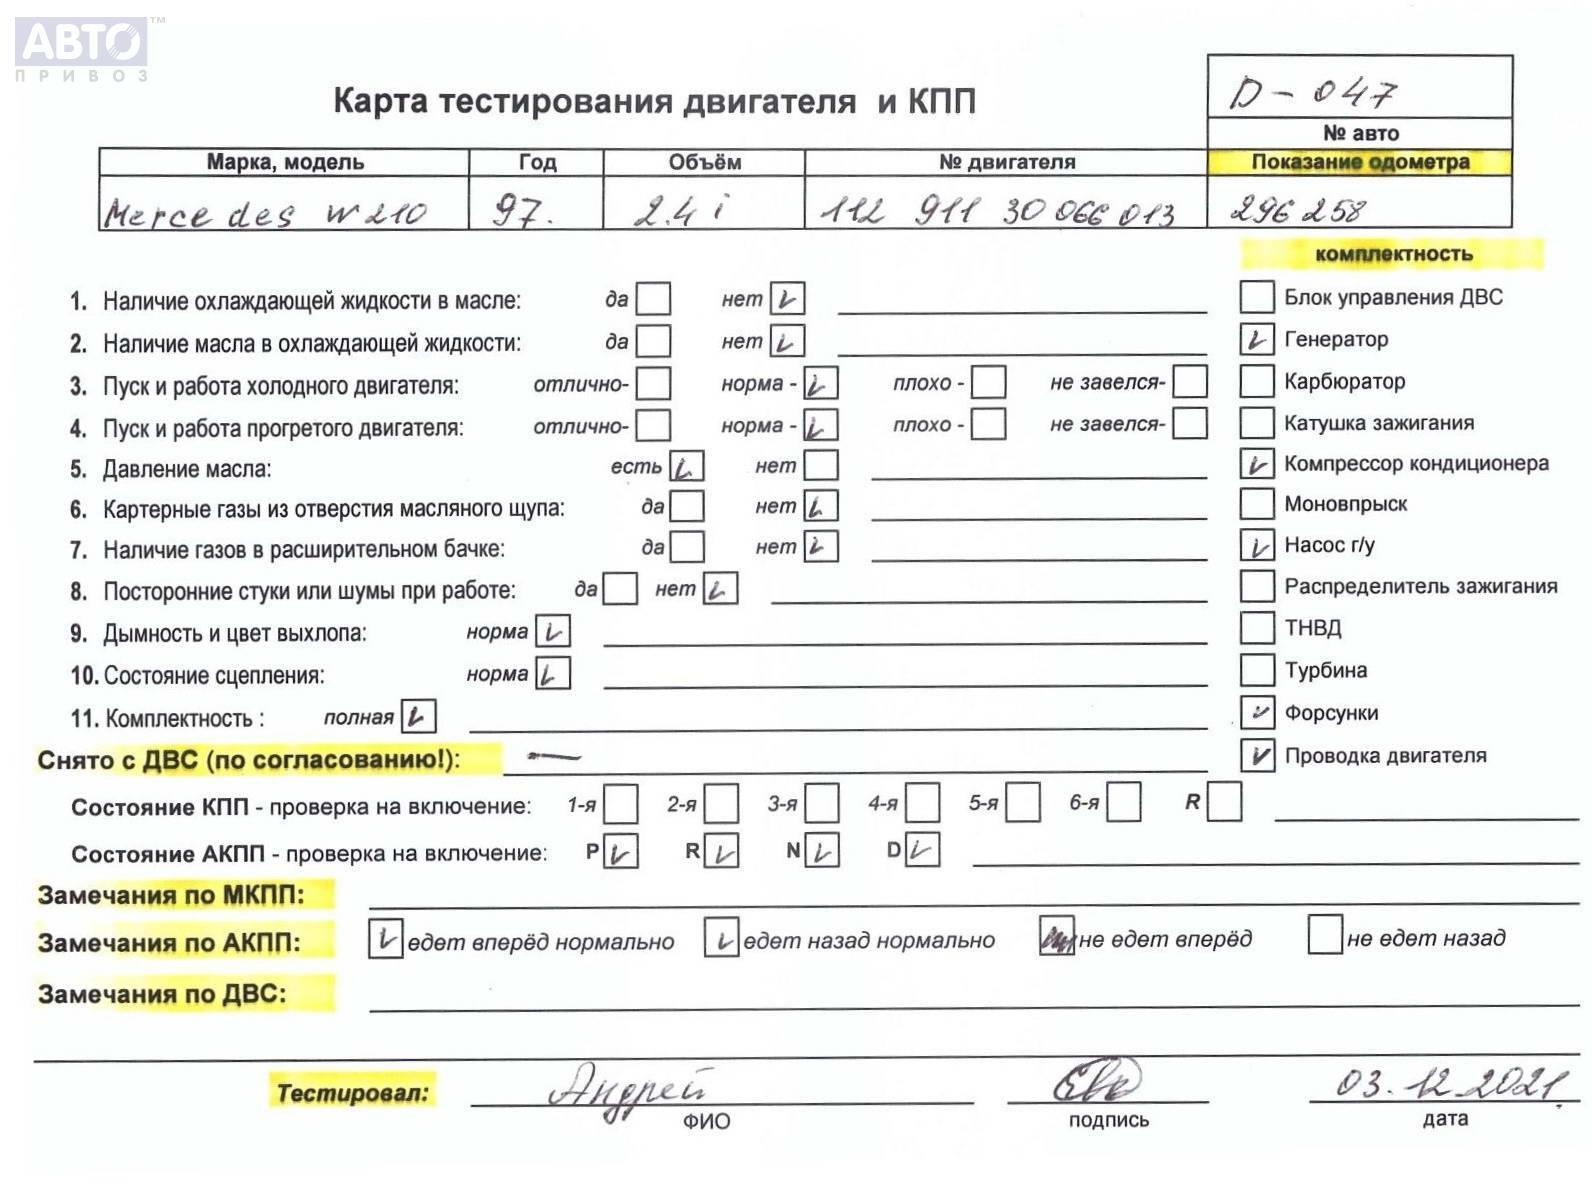 АВТО™
ПРИВОЗ
D - 047
Карта тестирования двигателя и КПП
№ авто
Марка, модель Год Объём № двигателя Показание одометра
Mercedes w210 97. 2.4 i 112 911 30 066 013 296 258
комплектность
1. Наличие охлаждающей жидкости в масле: да нет V Блок управления ДВС
2. Наличие масла в охлаждающей жидкости: да нет V V Генератор
3. Пуск и работа холодного двигателя: отлично- норма - V плохо - не завелся- Карбюратор
4. Пуск и работа прогретого двигателя: отлично- норма - V плохо - не завелся- Катушка зажигания
5. Давление масла: есть V нет V Компрессор кондиционера
6. Картерные газы из отверстия масляного щупа: да нет V Моновпрыск
7. Наличие газов в расширительном бачке: да нет V V Насос г/у
8. Посторонние стуки или шумы при работе: да нет V Распределитель зажигания
9. Дымность и цвет выхлопа: норма V ТНВД
10. Состояние сцепления: норма V Турбина
11. Комплектность : полная V V Форсунки
Снято с ДВС (по согласованию!): — V Проводка двигателя
Состояние КПП - проверка на включение: 1-я 2-я 3-я 4-я 5-я 6-я R
Состояние АКПП - проверка на включение: P V R V N V D V
Замечания по МКПП:
Замечания по АКПП: V едет вперёд нормально V едет назад нормально не едет вперёд не едет назад
Замечания по ДВС:
Тестировал: Андрей 03.12.2021
ФИО подпись дата